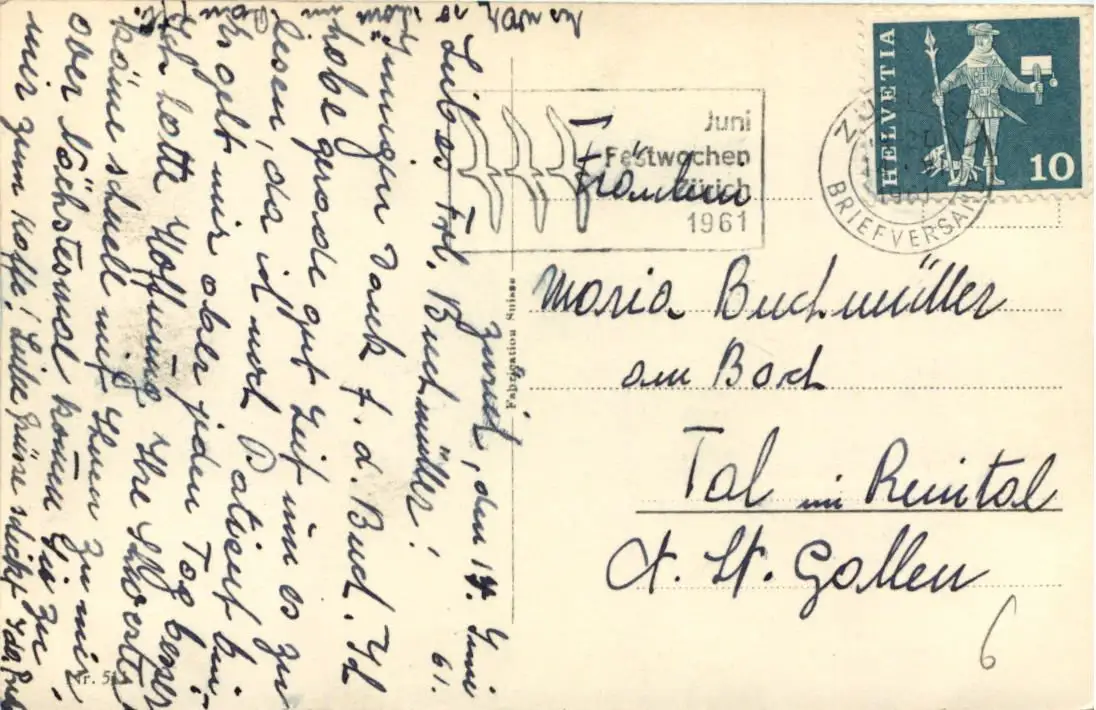 Zürich, den 14. Juni
61.
Liebes Frl. Buchmüller!
Innigen Dank f. d. Buch. Ich
habe gerade gut Zeit um es zu
lesen, da ich noch Patient bin
Es geht mir aber jeden Tag besser
Ich hatte Hoffnung, Ihre Schwester
käme schnell mit Ihnen zu mir
aber Nächstesmal komen Sie zu
mir zum Kaffe! Liebe Grüsse schickt Ida
Nr.
Fabrication Suisse
Juni
Festwochen
Zürich
1961
BRIEFVERSAND
1961
HELVETIA
10
Fräulein
Maria Buchmüller
am Bach
Tal im Reintal
Kt. St. Gallen
6